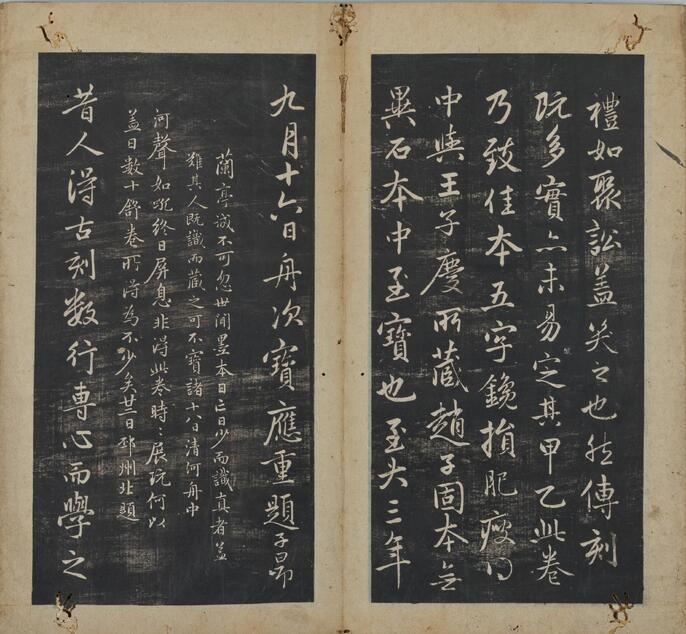 禮如聚訟蓋笑之也然傳刻
既多實亦未易定其甲乙此卷
乃致佳本五字鑱損肥瘦得
中與王子慶所藏趙子固本無
異石本中至寶也至大三年
九月十六日舟次寶應重題子昂
蘭亭誠不可忽世間墨本日亡日少而識真者蓋
難其人既識而藏之可不寶諸十八日清河舟中
河聲如吼終日屏息非得此卷時時展玩何以
蓋日數十舒卷所得為不少矣廿三日邳州北題
昔人得古刻數行專心而學之